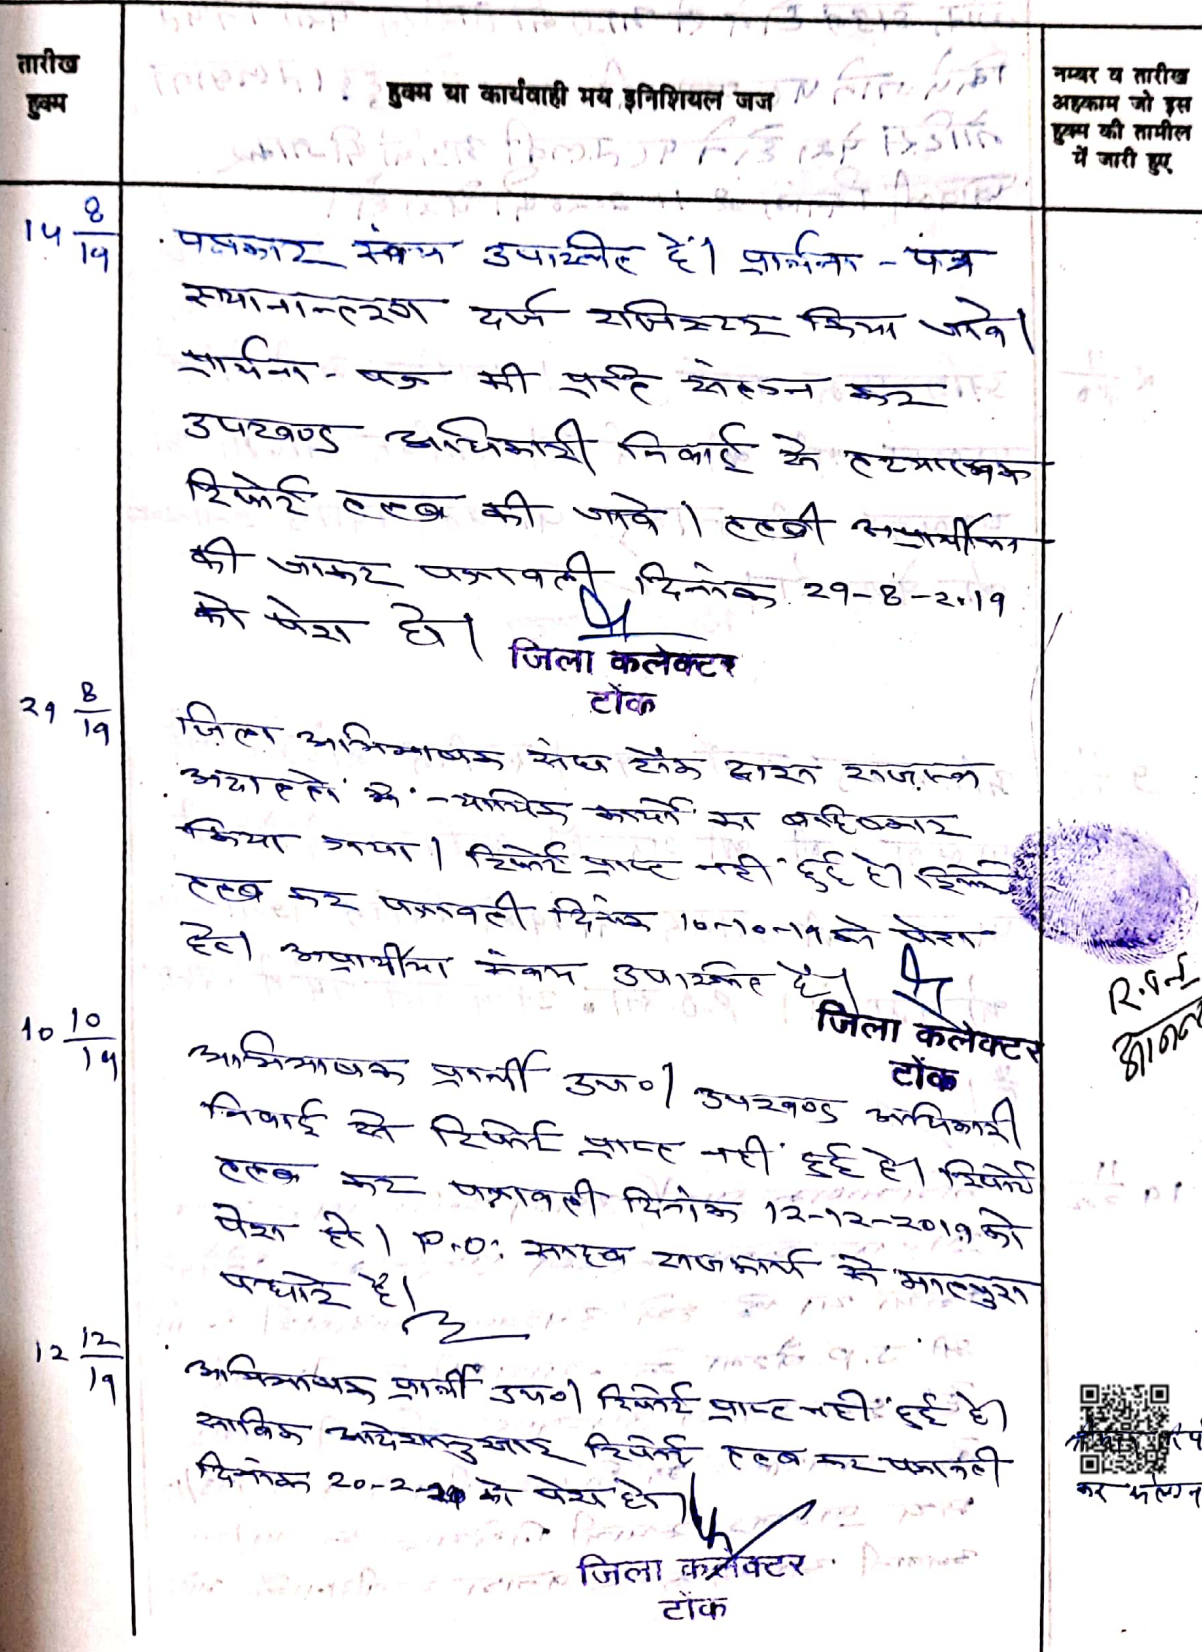 तारीख
हुक्म
हुक्म या कार्यवाही मय इनिशियल जज
नम्बर व तारीख
अहकाम जो इस
हुक्म की तामील
में जारी हुए
14 8/19
पक्षकार स्वंय उपास्थीत हैं। प्रार्थना - पत्र
स्थानान्तरण दर्ज राजिस्टर किया जावे।
प्रार्थना - पत्र की प्रति संलग्न कर
उपखण्ड अधिकारी निवाई से तथ्यात्मक
रिपोर्ट तलब की जावे। तलबी अप्रार्थीगण
की जाकर पत्रावली दिनांक 29-8-2019
को पेश हो।
जिला कलेक्टर
टोंक
29 8/19
जिला अभिभाषक संघ टोंक द्वारा राजस्व
अदालतों के न्यायिक कार्यो का बहिष्कार
किया गया। रिपोर्ट प्राप्त नही हुई है। रिपोर्ट
तलब कर पत्रावली दिनांक 10-10-19 को पेश
हो। अप्रार्थीया स्वंय उपास्थित है।
जिला कलेक्टर
टोंक
10 10/19
अभिभाषक प्रार्थी उप०। उपखण्ड अधिकारी
निवाई से रिपोर्ट प्राप्त नही हुई है। रिपोर्ट
तलब कर पत्रावली दिनांक 12-12-2019 को
पेश हो। P.O. साहब राजकार्य से मालपुरा
पधारे है।
12 12/19
अभिभाषक प्रार्थी उप०। रिपोर्ट प्राप्त नही हुई है।
साबिक आदेशानुसार रिपोर्ट तलब कर पत्रावली
दिनांक 20-2-20 को पेश हो।
जिला कलेक्टर
टोंक
कर संलग्न